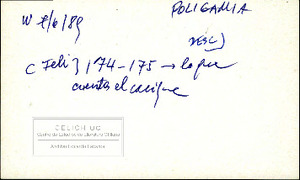 W 8/6/89
POLIGAMIA
DESC)
C Feli } 174-175 → lo que
cuenta el cacique
CELICH UC
Centro de Estudios de Literatura Chilena